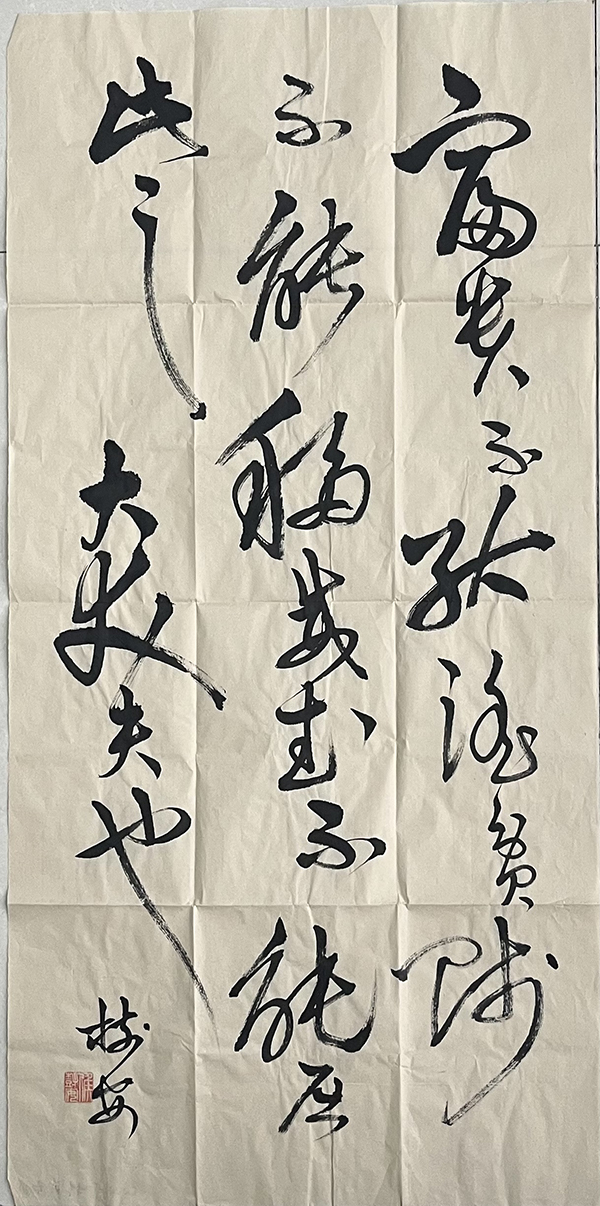 富贵不能淫贫贱
不能移威武不能屈
此之大丈夫也
树安